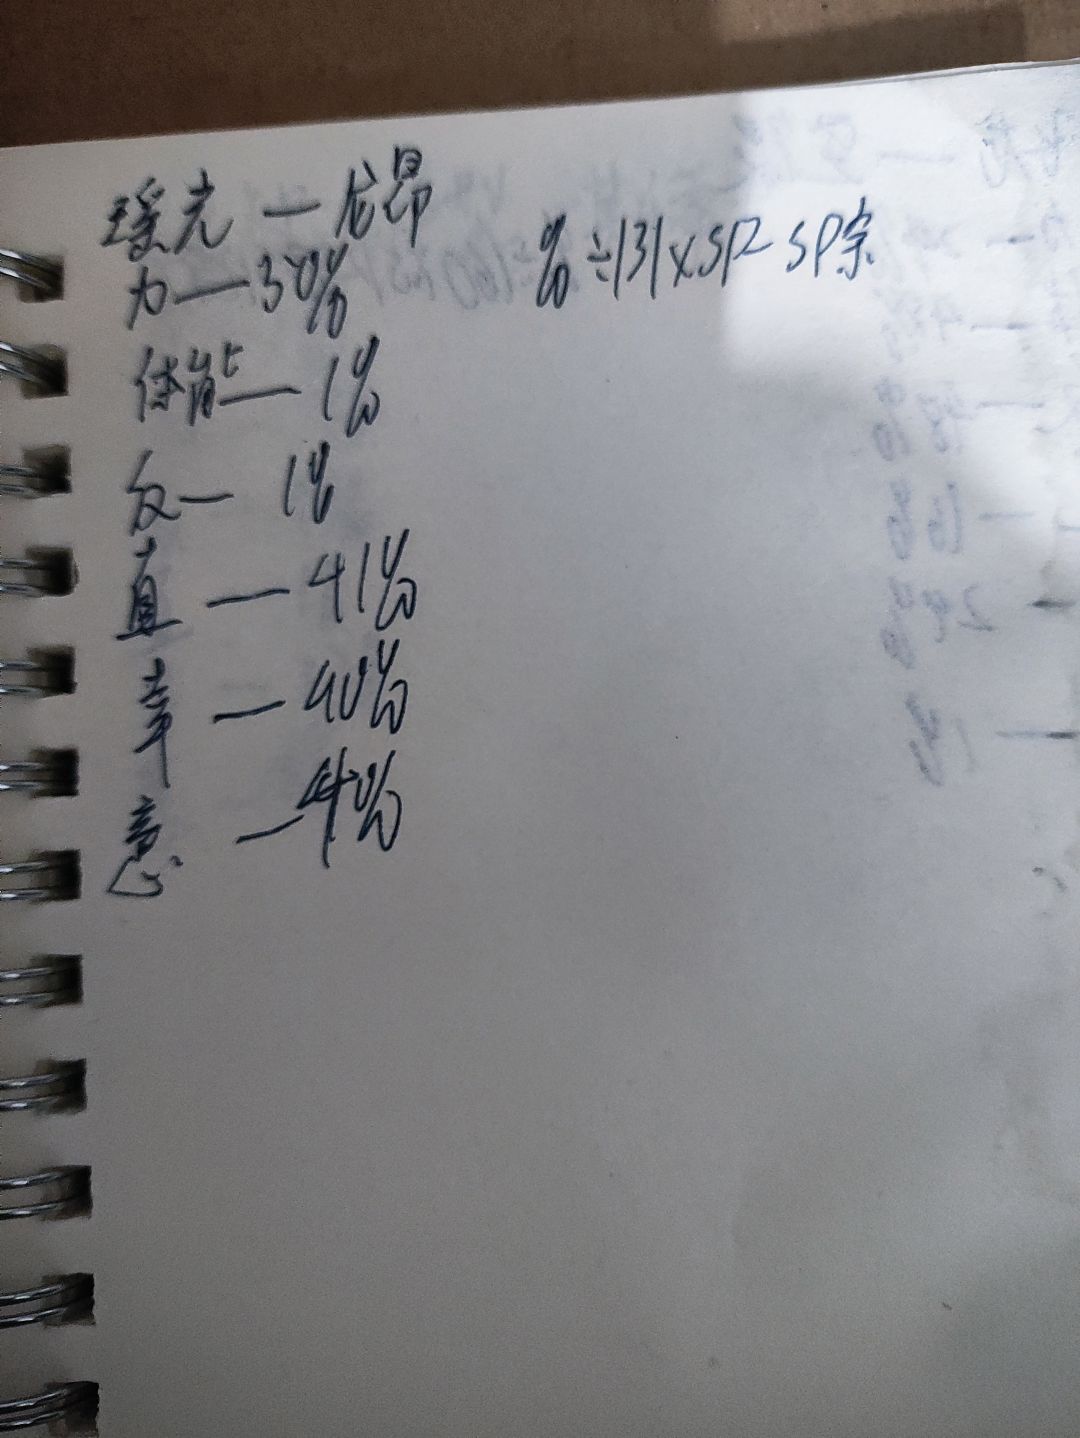 瑶光 — 龙昂
力 — 30%
%÷131×SP SP宗
体能 — 1%
反 — 1%
直 — 41%
幸 — 40%
意 — 4%